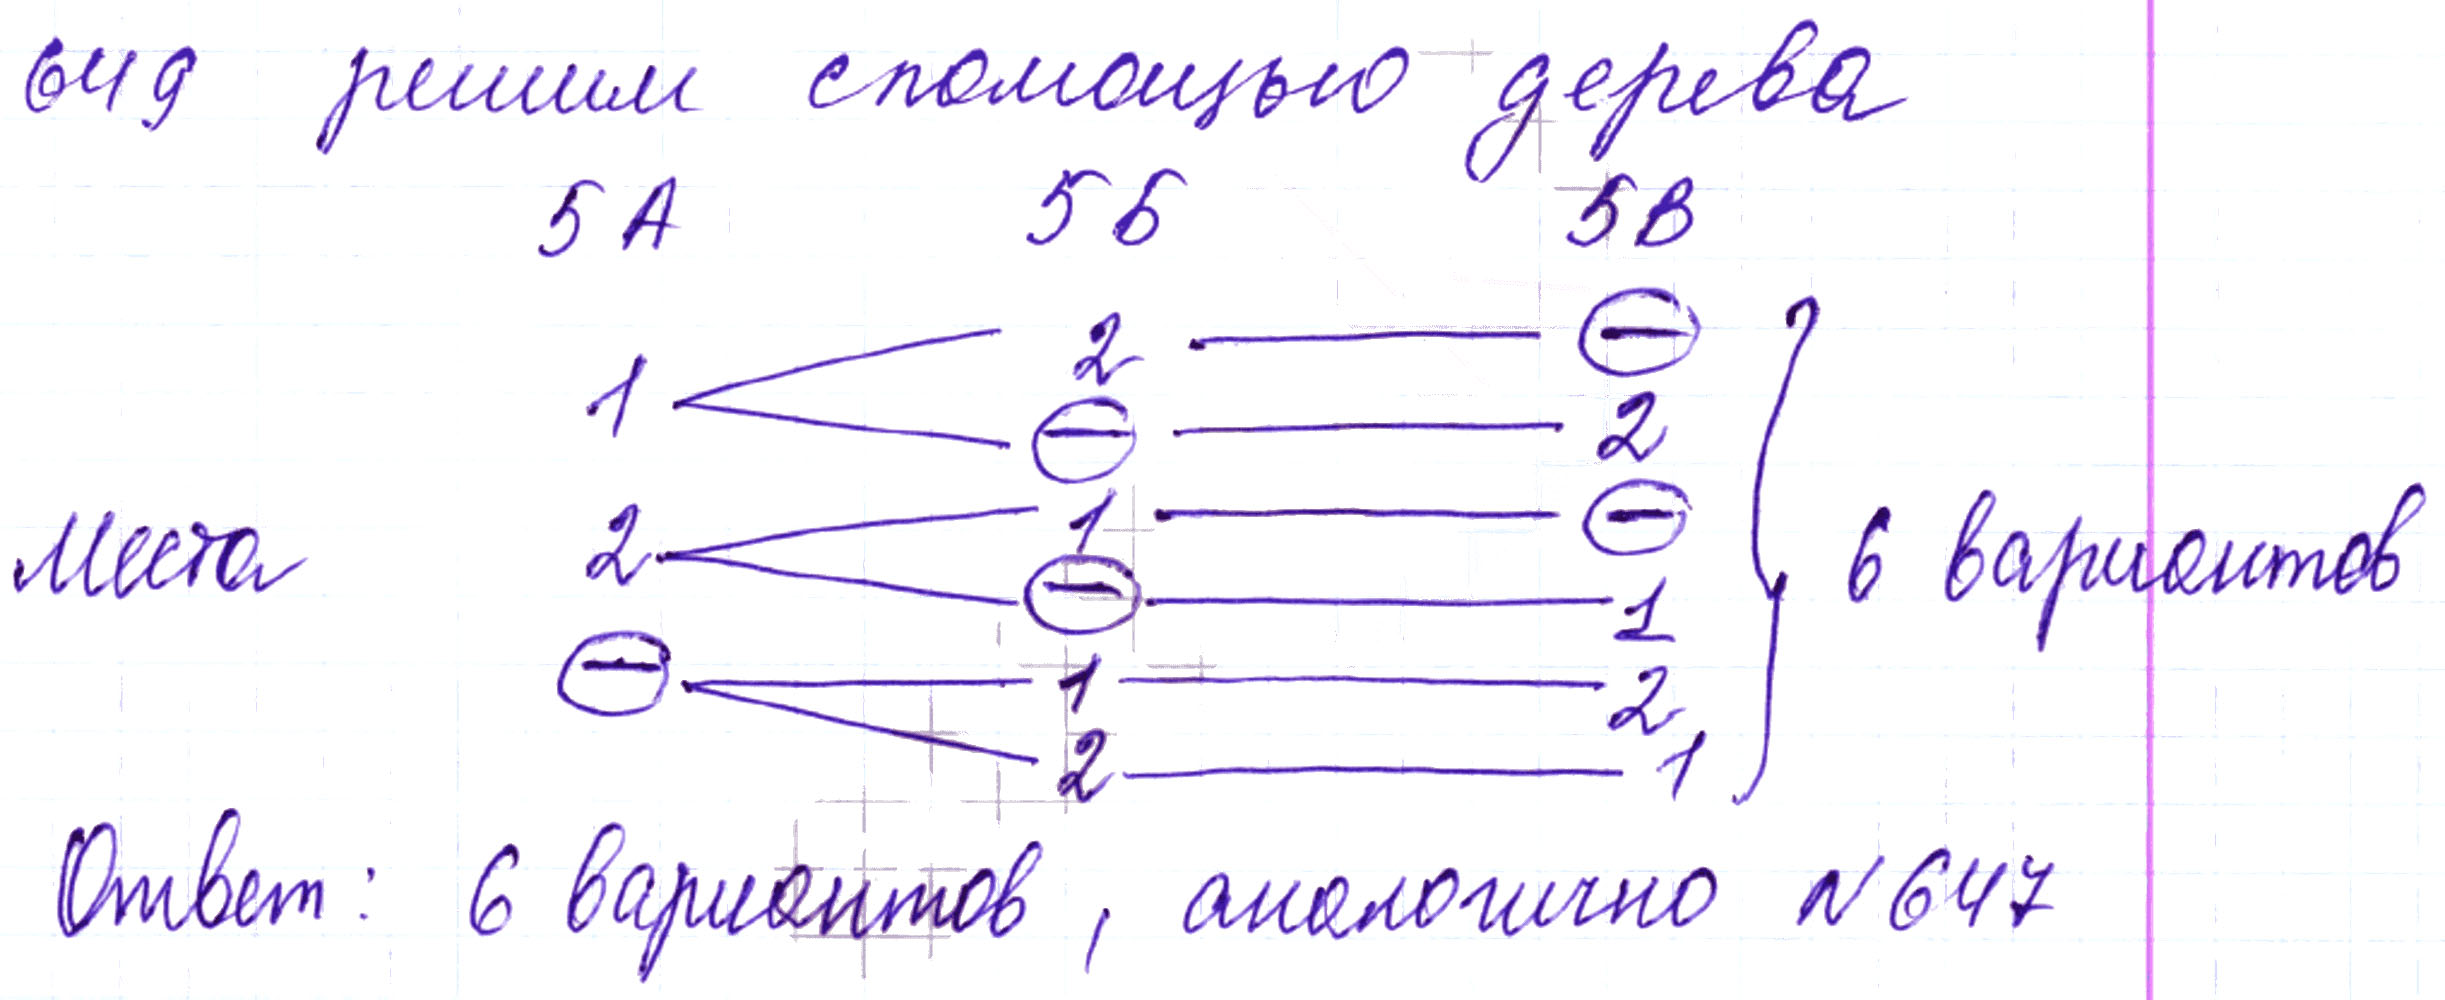 649 решим спомощью дерева
5А 5Б 5В
2 ⊖
1
⊖ 2
1 ⊖
Места 2 6 вариантов
⊖ 1
⊖ 1 2
2 1
Ответ: 6 вариантов, аналогично N 647